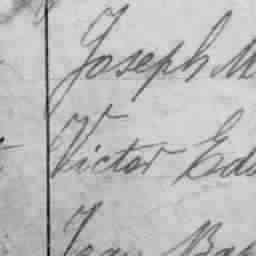 Joseph M
Victor Edo
Jean Bap